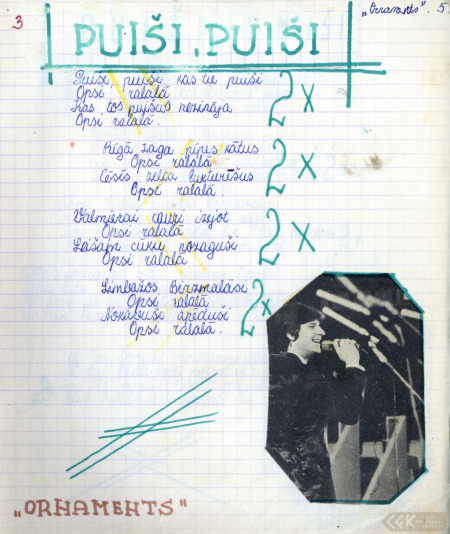 3
„Ornaments". 5
PUIŠI, PUIŠI
Puiši, puiši kas tie puiši
Opsi ralalā
Kas tos puišus nezināja
Opsi ralalā.
2x
Rīgā zaga pīpes kātus
Opsi ralalā
Cēsīs zelta lukturīšus
Opsi ralalā.
2x
Valmierai cauri izejot
Opsi ralalā
Lašam cūku nozaguši
Opsi ralalā
2x
Limbažos Birzmalāsi
Opsi ralalā
Nokāvuši apēduši
Opsi ralalā.
2x
„ORNAMENTS"